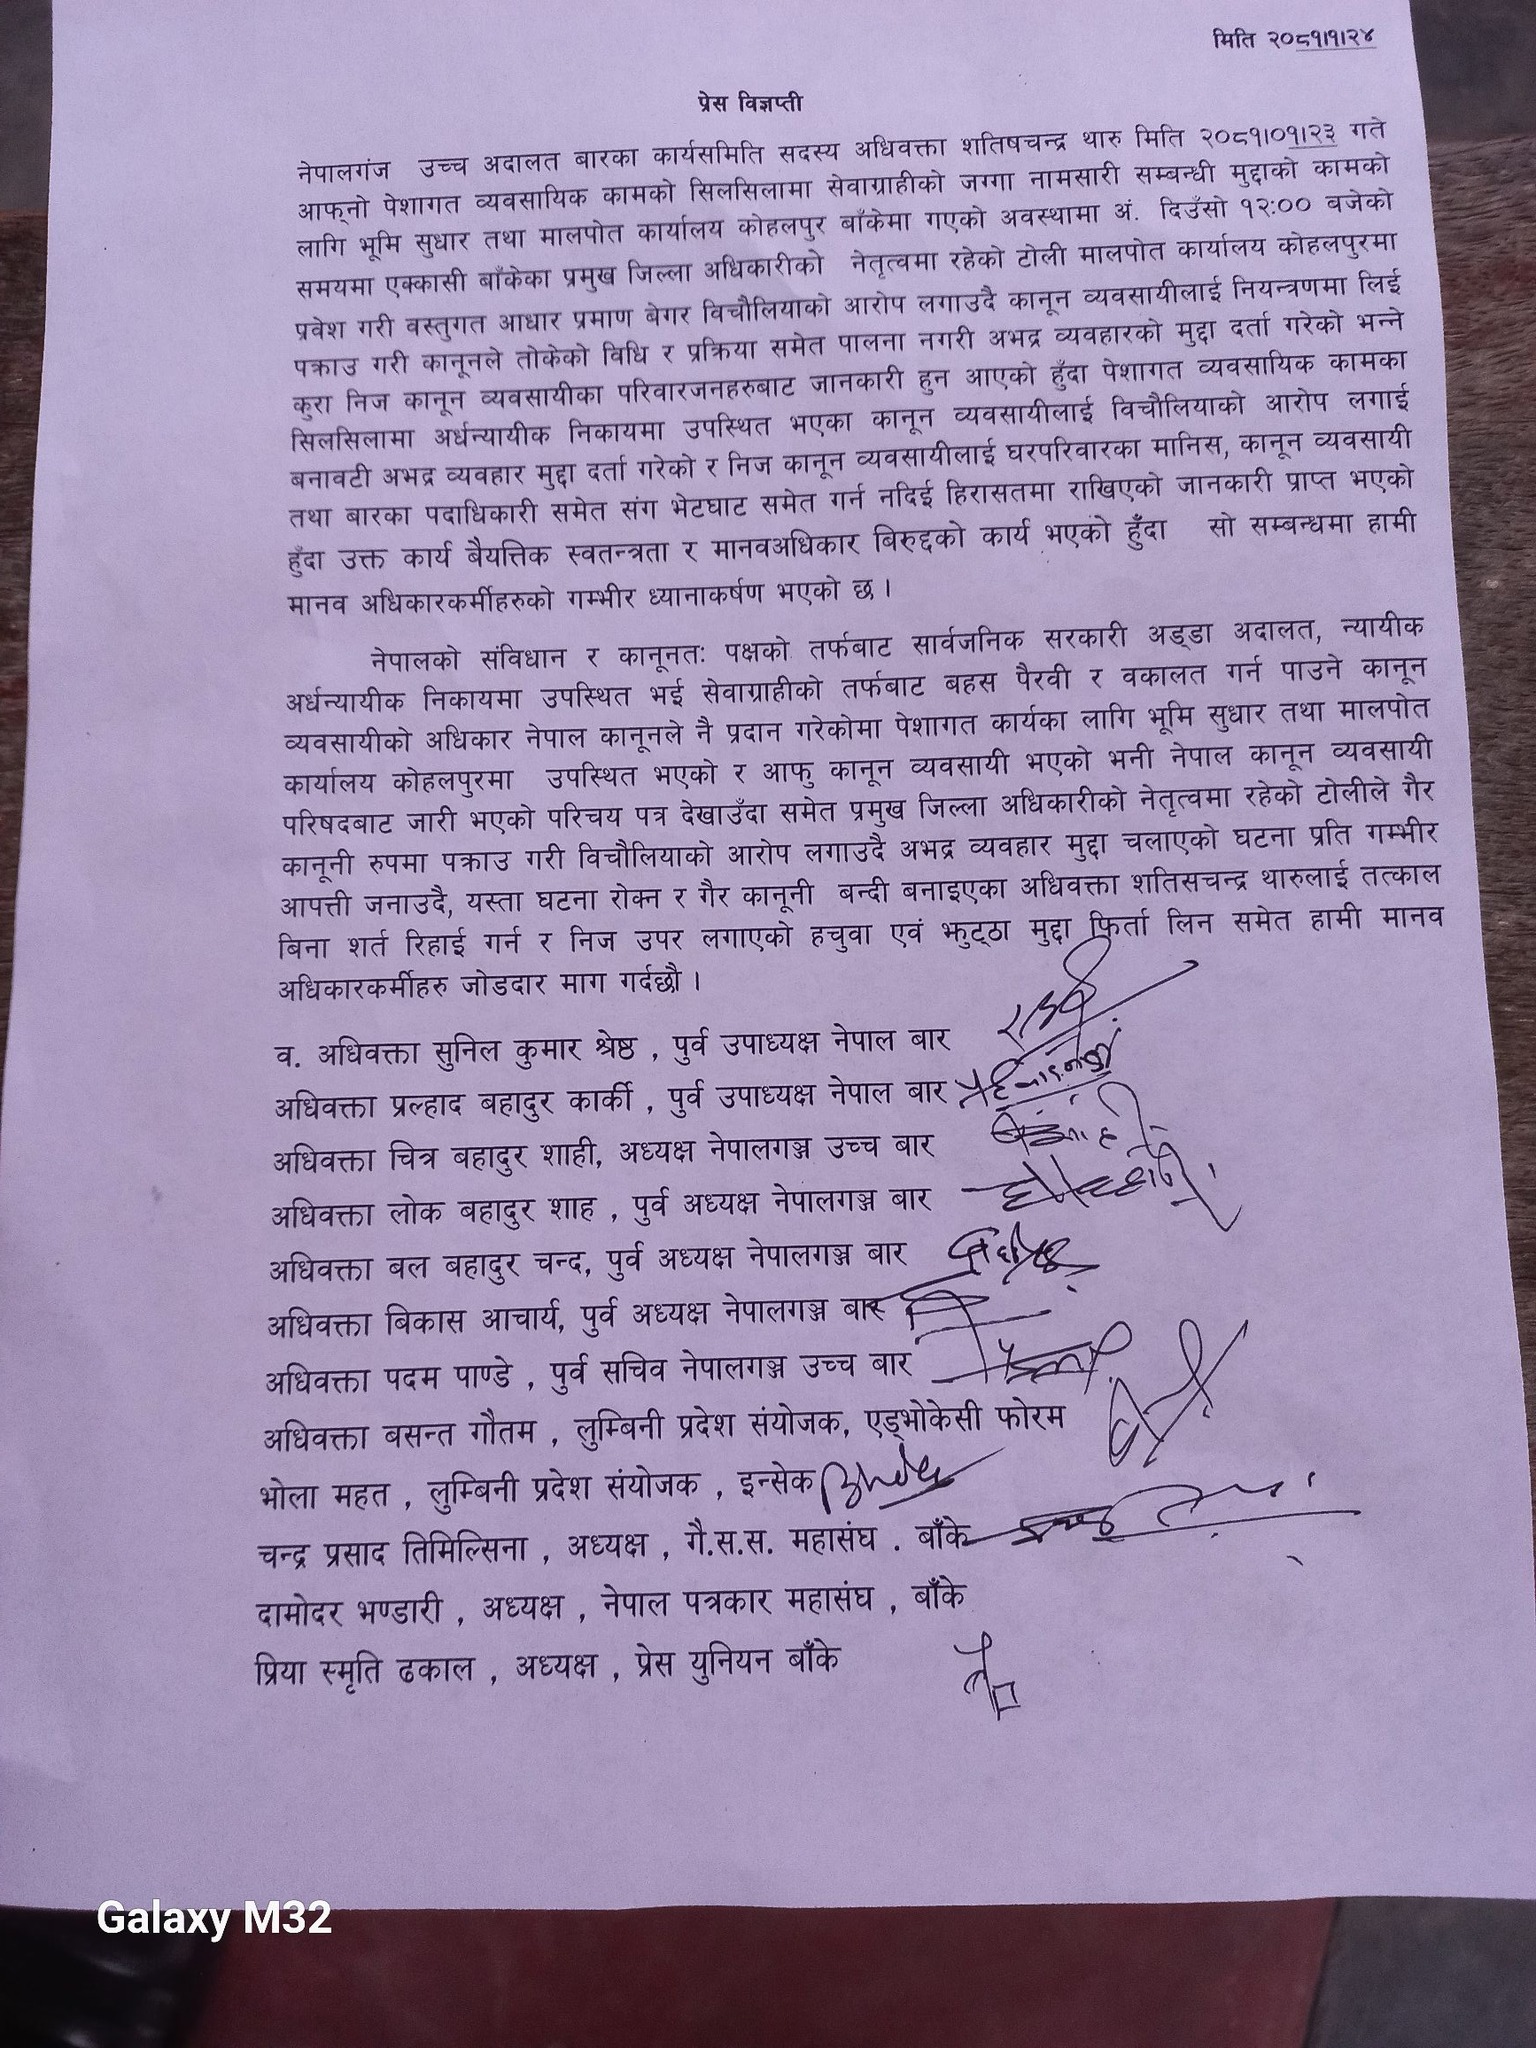 मिति २०८१।१।२४
प्रेस विज्ञप्ती
नेपालगंज उच्च अदालत बारका कार्यसमिति सदस्य अधिवक्ता शतिषचन्द्र थारु मिति २०८१।०१।२३ गते
आफ्नो पेशागत व्यवसायिक कामको सिलसिलामा सेवाग्राहीको जग्गा नामसारी सम्बन्धी मुद्दाको कामको
लागि भूमि सुधार तथा मालपोत कार्यालय कोहलपुर बाँकेमा गएको अवस्थामा अं. दिउँसो १२:०० बजेको
समयमा एक्कासी बाँकेका प्रमुख जिल्ला अधिकारीको नेतृत्वमा रहेको टोली मालपोत कार्यालय कोहलपुरमा
प्रवेश गरी वस्तुगत आधार प्रमाण बेगर विचौलियाको आरोप लगाउदै कानून व्यवसायीलाई नियन्त्रणमा लिई
पक्राउ गरी कानूनले तोकेको विधि र प्रक्रिया समेत पालना नगरी अभद्र व्यवहारको मुद्दा दर्ता गरेको भन्ने
कुरा निज कानून व्यवसायीका परिवारजनहरुबाट जानकारी हुन आएको हुँदा पेशागत व्यवसायिक कामका
सिलसिलामा अर्धन्यायीक निकायमा उपस्थित भएका कानून व्यवसायीलाई विचौलियाको आरोप लगाई
बनावटी अभद्र व्यवहार मुद्दा दर्ता गरेको र निज कानून व्यवसायीलाई घरपरिवारका मानिस, कानून व्यवसायी
तथा बारका पदाधिकारी समेत संग भेटघाट समेत गर्न नदिई हिरासतमा राखिएको जानकारी प्राप्त भएको
हुँदा उक्त कार्य बैयत्तिक स्वतन्त्रता र मानवअधिकार बिरुद्दको कार्य भएको हुँदा सो सम्बन्धमा हामी
मानव अधिकारकर्मीहरुको गम्भीर ध्यानाकर्षण भएको छ।
नेपालको संविधान र कानूनतः पक्षको तर्फबाट सार्वजनिक सरकारी अड्डा अदालत, न्यायीक
अर्धन्यायीक निकायमा उपस्थित भई सेवाग्राहीको तर्फबाट बहस पैरवी र वकालत गर्न पाउने कानून
व्यवसायीको अधिकार नेपाल कानूनले नै प्रदान गरेकोमा पेशागत कार्यका लागि भूमि सुधार तथा मालपोत
कार्यालय कोहलपुरमा उपस्थित भएको र आफु कानून व्यवसायी भएको भनी नेपाल कानून व्यवसायी
परिषदबाट जारी भएको परिचय पत्र देखाउँदा समेत प्रमुख जिल्ला अधिकारीको नेतृत्वमा रहेको टोलीले गैर
कानूनी रुपमा पक्राउ गरी विचौलियाको आरोप लगाउदै अभद्र व्यवहार मुद्दा चलाएको घटना प्रति गम्भीर
आपत्ती जनाउदै, यस्ता घटना रोक्न र गैर कानूनी बन्दी बनाइएका अधिवक्ता शतिसचन्द्र थारुलाई तत्काल
बिना शर्त रिहाई गर्न र निज उपर लगाएको हचुवा एवं झुट्ठा मुद्दा फिर्ता लिन समेत हामी मानव
अधिकारकर्मीहरु जोडदार माग गर्दछौ।
व. अधिवक्ता सुनिल कुमार श्रेष्ठ , पुर्व उपाध्यक्ष नेपाल बार
अधिवक्ता प्रल्हाद बहादुर कार्की , पुर्व उपाध्यक्ष नेपाल बार
अधिवक्ता चित्र बहादुर शाही, अध्यक्ष नेपालगञ्ज उच्च बार
अधिवक्ता लोक बहादुर शाह , पुर्व अध्यक्ष नेपालगञ्ज बार
अधिवक्ता बल बहादुर चन्द, पुर्व अध्यक्ष नेपालगञ्ज बार
अधिवक्ता बिकास आचार्य, पुर्व अध्यक्ष नेपालगञ्ज बार
अधिवक्ता पदम पाण्डे , पुर्व सचिव नेपालगञ्ज उच्च बार
अधिवक्ता बसन्त गौतम , लुम्बिनी प्रदेश संयोजक, एड्भोकेसी फोरम
भोला महत , लुम्बिनी प्रदेश संयोजक , इन्सेक
चन्द्र प्रसाद तिमिल्सिना , अध्यक्ष , गै.स.स. महासंघ . बाँके
दामोदर भण्डारी , अध्यक्ष , नेपाल पत्रकार महासंघ , बाँके
प्रिया स्मृति ढकाल , अध्यक्ष , प्रेस युनियन बाँके
Galaxy M32